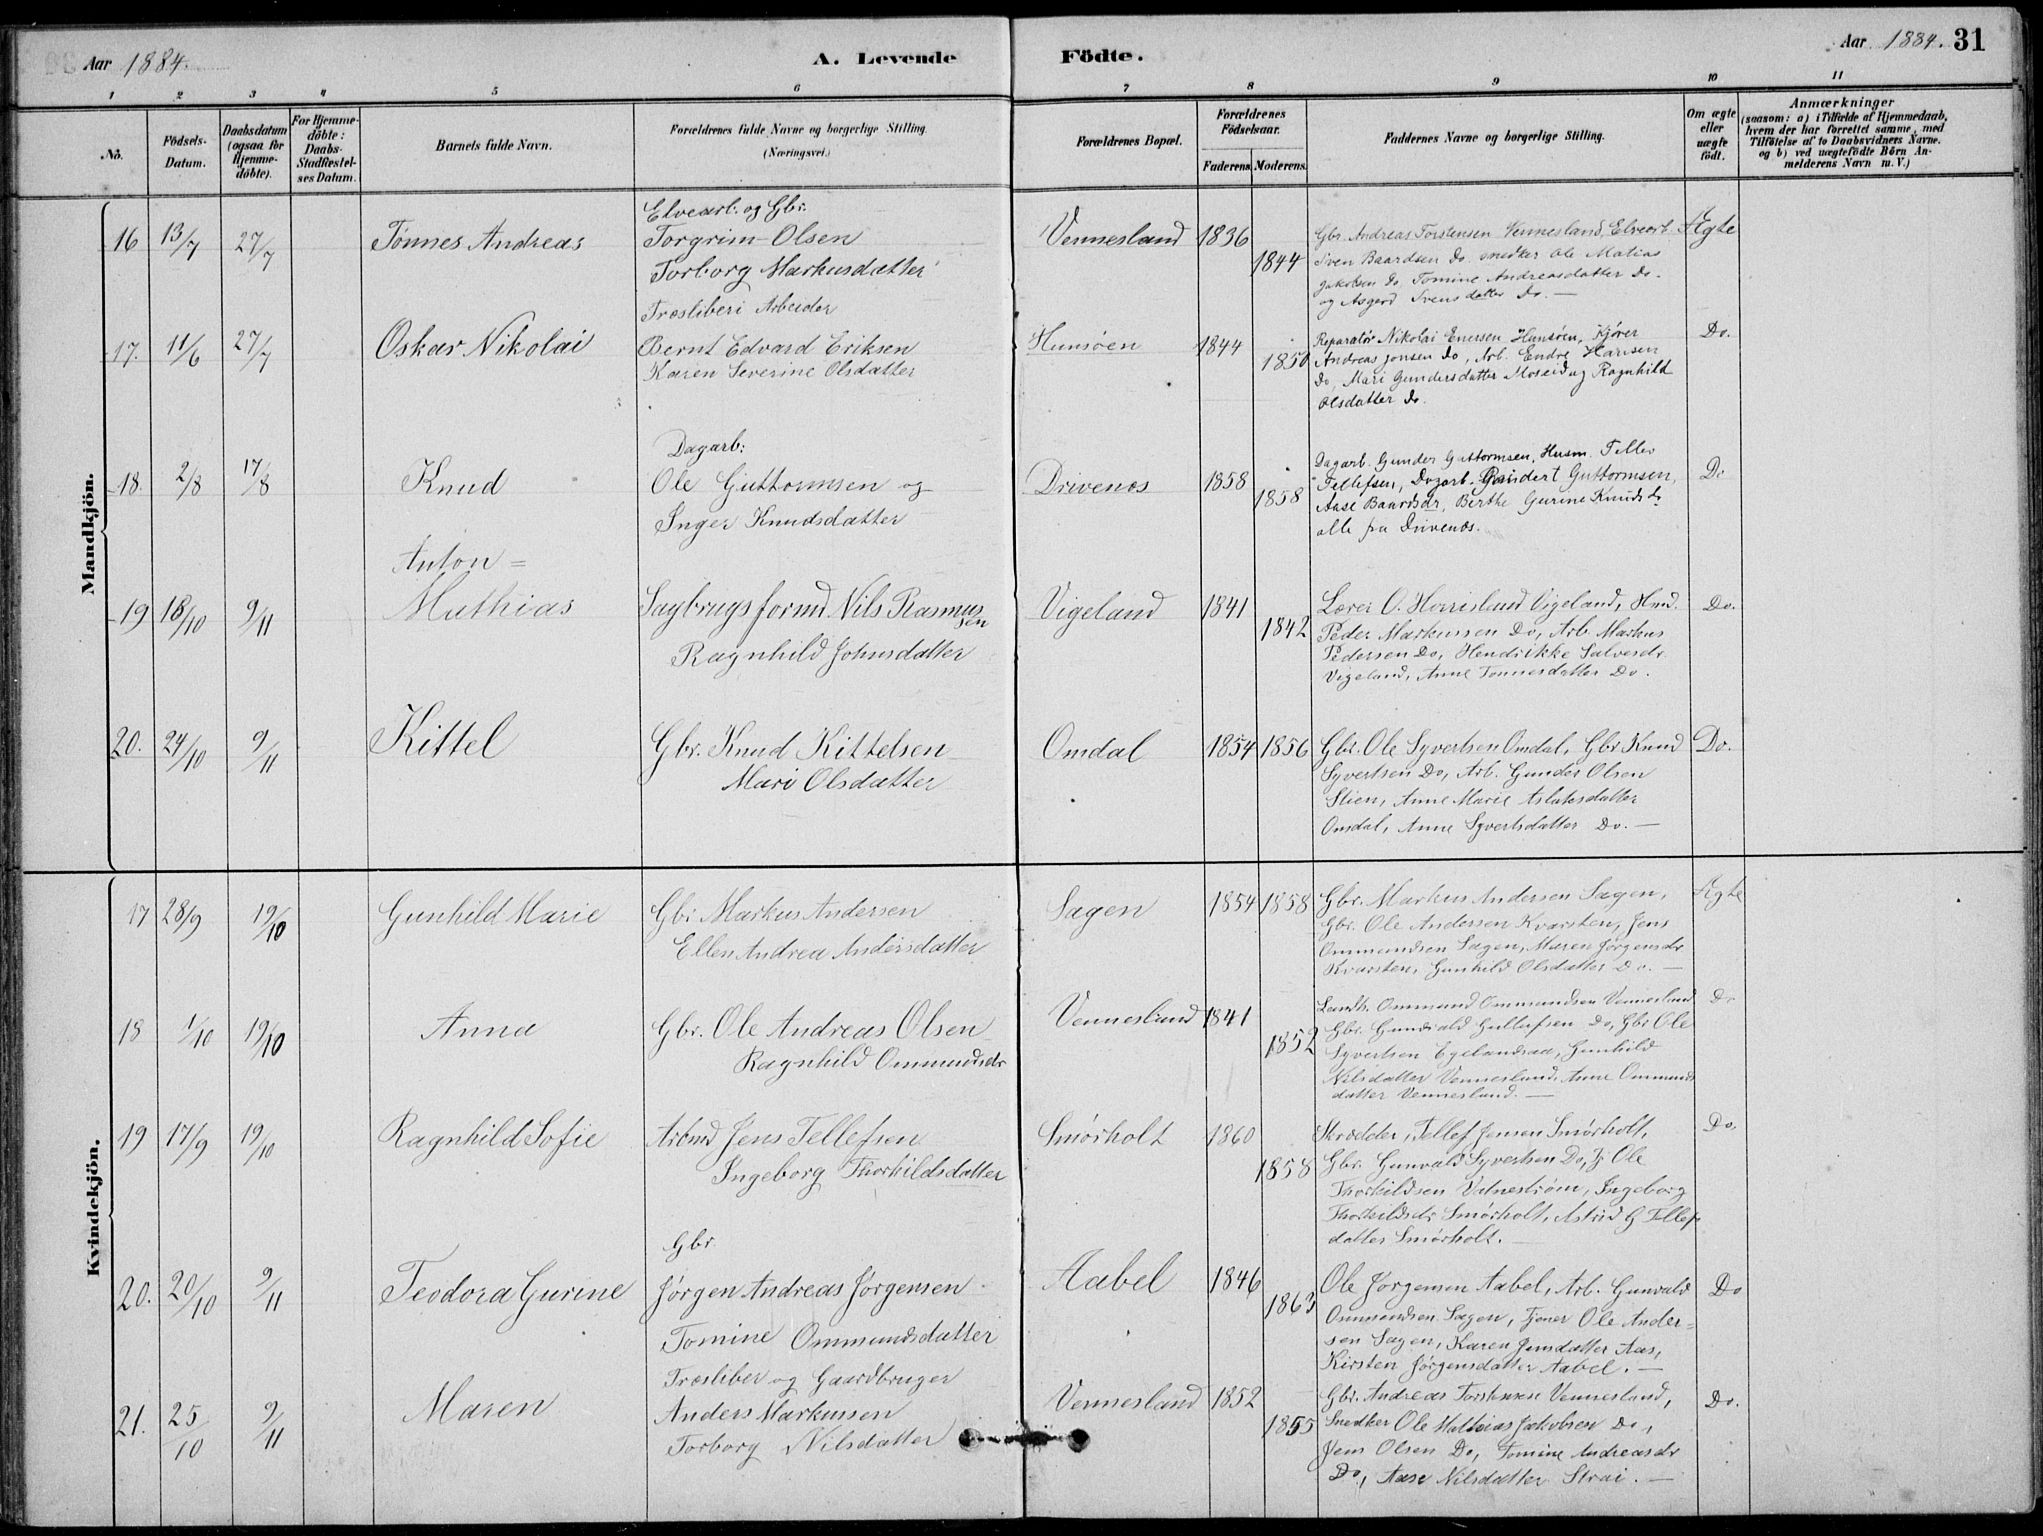 Aar 1884.
A. Levende Födte.
Aar 1884. 31
1 2 3 4 5 6 7 8 9 10 11
No.
Födsels-Datum.
Daabsdatum (ogsaa for Hjemme-döbte).
For Hjemme-döbte: Daabs-Stadfæstel-ses Datum.
Barnets fulde Navn.
Forældrenes fulde Navne og borgerlige Stilling. (Næringsvei.)
Forældrenes Bopæl.
Forældrenes Födselsaar.
Faderens. Moderens.
Faddernes Navne og borgerlige Stilling.
Om ægte eller uægte födt.
Anmærkninger
(saasom: a) i Tilfælde af Hjemmedaab,
hvem der har forrettet samme, med
Tilföielse af to Daabsvidners Navne.
og b) ved uægtefödte Börn An-
melderens Navn m. V.)
Mandkjön.
16 13/7 27/7 Tönnes Andreas
Elvearb. og Gbr.
Torgrim Olsen
Torborg Markusdatter
Vennesland 1836 1844
Gbr. Andreas Torstensen Vennesland, Elvearb.
Sven Baardsen Do. snedker Ole Matias
Jakobsen Do. Tomine Andreasdatter Do.
og Asgerd Svensdatter Do. —
Ægte
17. 11/6 27/7 Oskar Nikolai
Træsliberi Arbeider
Bernt Edvard Eriksen
Karen Severine Olsdatter
Hunsöen 1844 1850
Reparatör Nikolai Enersen Hunsöen, Kjörer
Andreas Jonsen Do, Arb. Endre Hansen
Do, Mari Gundersdatter Moseid og Ragnhild
Olsdatter Do.
Do.
18. 2/8 17/8 Knud
Dagarb:
Ole Guttormsen og
Inger Knudsdatter
Drivenes 1858 1858
Dagarb. Gunder Guttormsen, Husm. Tellev
Tellefsen, Dagarb. Guttormsen,
Aase Baardsdr, Berthe Gurine Knudsdr
alle fra Drivenes.
Do
19 18/10 9/11 Anton =
Mathias
Sagbrugsformd. Nils Rasmussen
Ragnhild Johnsdatter
Vigeland 1841 1842
Lærer O. Vigeland, Hmd.
Peder Markussen Do, Arb. Markus
Pedersen Do, Hendrikke Salvesdr
Vigeland, Anne Tönnesdatter Do.
Do.
20. 24/10 9/11 Kittel
Gbr. Knud Kittelsen
Mari Olsdatter
Omdal 1854 1856
Gbr. Ole Syvertsen Omdal, Gbr Knud
Syvertsen Do, Arb. Gunder Olsen
Stien, Anne Marie Aslaksdatter
Omdal, Anne Syvertsdatter Do. —
Do.
Kvindekjön.
17 28/9 19/10 Gunhild Marie
Gbr Markus Andersen
Ellen Andrea Andersdatter
Sagen 1854 1858
Gbr. Markus Andersen Sagen,
Gbr. Ole Andersen Kvarsten, Jens
Ommundsen Sagen, Maren Jörgensdr
Kvarsten, Gunhild Olsdatter Do. —
Ægte
18 1/10 19/10 Anna
Gbr. Ole Andreas Olsen
Ragnhild Ommundsdr
Vennesland 1841 1852
Landh. Ommund Ommundsen Vennesland
Gbr. Gundvald Gullufsen Do, Gbr Ole
Syvertsen Egelandsaa, Gunhild
Nilsdatter Vennesland, Anne Ommunds
datter Vennesland. —
Do
19 17/9 19/10 Ragnhild Sofie
Arbmd Jens Tellefsen
Ingeborg Thorkildsdatter
Smörholt 1860 1858
Skrædder, Tellef Jensen Smörholt,
Gbr. Gunvald Syvertsen Do, Ole
Thorkildsen Vatneström, Ingeborg
Thorkildsdr Smörholt, Astrid G Tellefs
datter Smörholt. —
Do.
20. 20/10 9/11 Teodora Gurine
Gbr
Jörgen Andreas Jörgensen
Tomine Ommundsdatter
Aabel 1846 1863
Ole Jörgensen Aabel, Arb. Gunvald
Ommundsen Sagen, Tjener Ole Ander-
sen Sagen, Karen Jensdatter Aas,
Kirsten Jörgensdatter Aabel. —
Do
21. 25/10 9/11 Maren
Træsliber og Gaardbruger
Anders Markussen
Torborg Nilsdatter
Vennesland 1852 1855
Gbr. Andreas Torstensen Vennesland,
Snedker Ole Mathias Jakobsen Do,
Jens Olsen Do, Tomine Andreasdr
Do, Aase Nilsdatter Strai. —
Do.